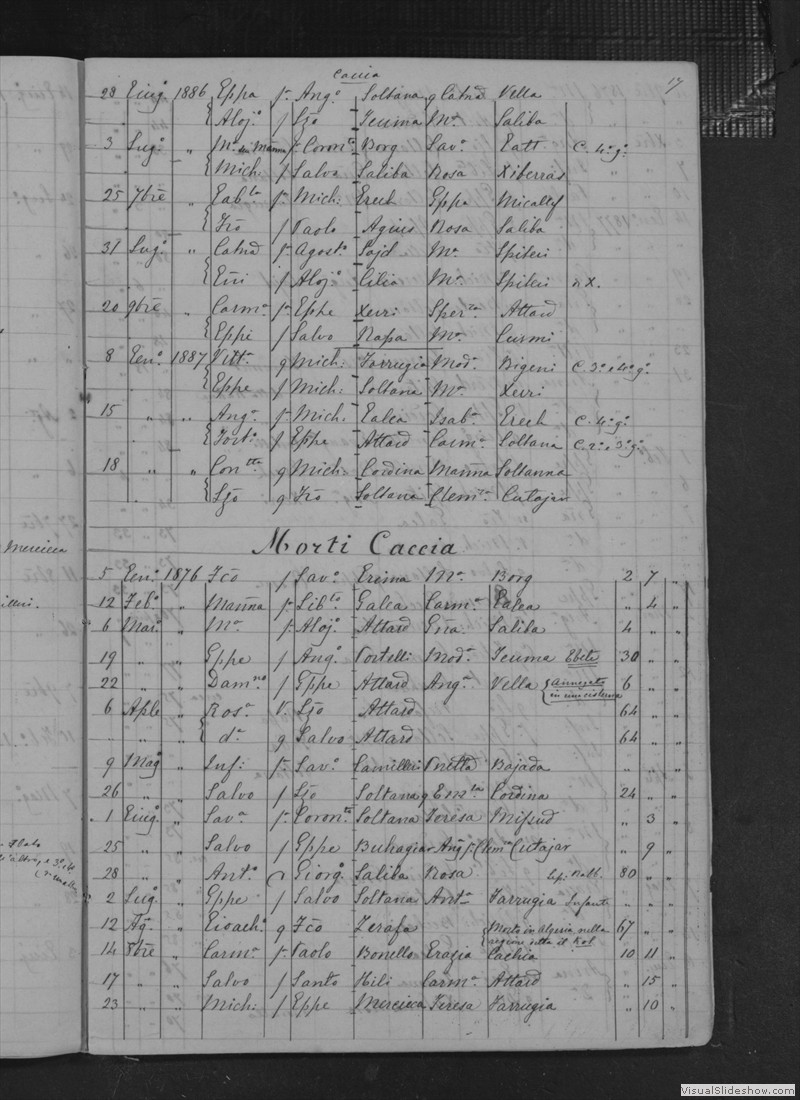 Caccia
17
28 Giug.º 1886 Eppa f. Ang.º Soltana q Catnd Vella
Aloj.º f Lzo Teuma M.a Saliba
3 Lug.º " M.a di Manna f. Coron.to Borg Sav.a Gatt C. 4.º g.º
Mich. f Salvo Saliba Rosa Xiberras
25 7bre " Gab.tto f. Mich: Grech Eppa Micallef
Fco f Paolo Agius Rosa Saliba
31 Lug.º " Catnd f. Agost.º Sajd M.a Spiteri
f Aloj.º Cilia M.a Spiteri n X.
20 9bre " Carm.a f. Eppe Xerri Sper.za Attard
Eppe f Salvo Rapa M.a Curmi
8 Gen.º 1887 Vitt.a q Mich: Farrugia Mod.a Bigeni C. 3.º e 4.º g.º
Eppe f Mich: Soltana M.a Xerri
15 " " Ang.a f. Mich. Galea Isab.a Grech C. 4.º g.º
Fort.º f Eppe Attard Carm.a Soltana C. 2.º e 3.º g.º
18 " " Con.tta q Mich: Cordina Manna Soltanna
Lzo q Fco Soltana Clem.a Cutajar
Morti Caccia
5 Gen.º 1876 Fco f Sav.º Grima M.a Borg 2 7 "
12 Feb.º " Manna f. Lib.to Galea Carm.a Galea " 4 "
6 Mar.º " M.a f. Aloj.º Attard Gria Saliba 4 " "
19 " " Eppe f Ang.º Portelli Mod.a Teuma Ebete 30 " "
22 " " Dam.no f Eppe Attard Ang.a Vella annegato in una cisterna 6 " "
6 Aple " Ros.a V. Lzo Attard 64 " "
" " d.a q Salvo Attard 64 " "
9 Mag.º " Inf: f. Sav.º Camilleri Bajada " " "
26 " " Salvo f Lzo Soltana q Cordina 24 " "
1 Giug.º " Sav.a f. Coron.to Soltana Teresa Mifsud " 3 "
25 " " Salvo f Eppe Buhagiar Cutajar " 9 "
28 " " Ant.º Giorg.º Saliba Rosa 80 " "
2 Lug.º " Eppe f Salvo Soltana Ant.a Farrugia Infante " " "
12 Ag.º " Gioach.º q Fco Zerafa Morto in Algeria nella regione detta il Kol 67 " "
14 8bre " Carm.a f. Paolo Bonello Grazia Cachia 10 11 "
17 " " Salvo f Santo Hili Carm.a Attard " 15 "
23 " " Mich: f Eppe Mercieca Teresa Farrugia " 10 "
Mercieca
VisualSlideshow.com